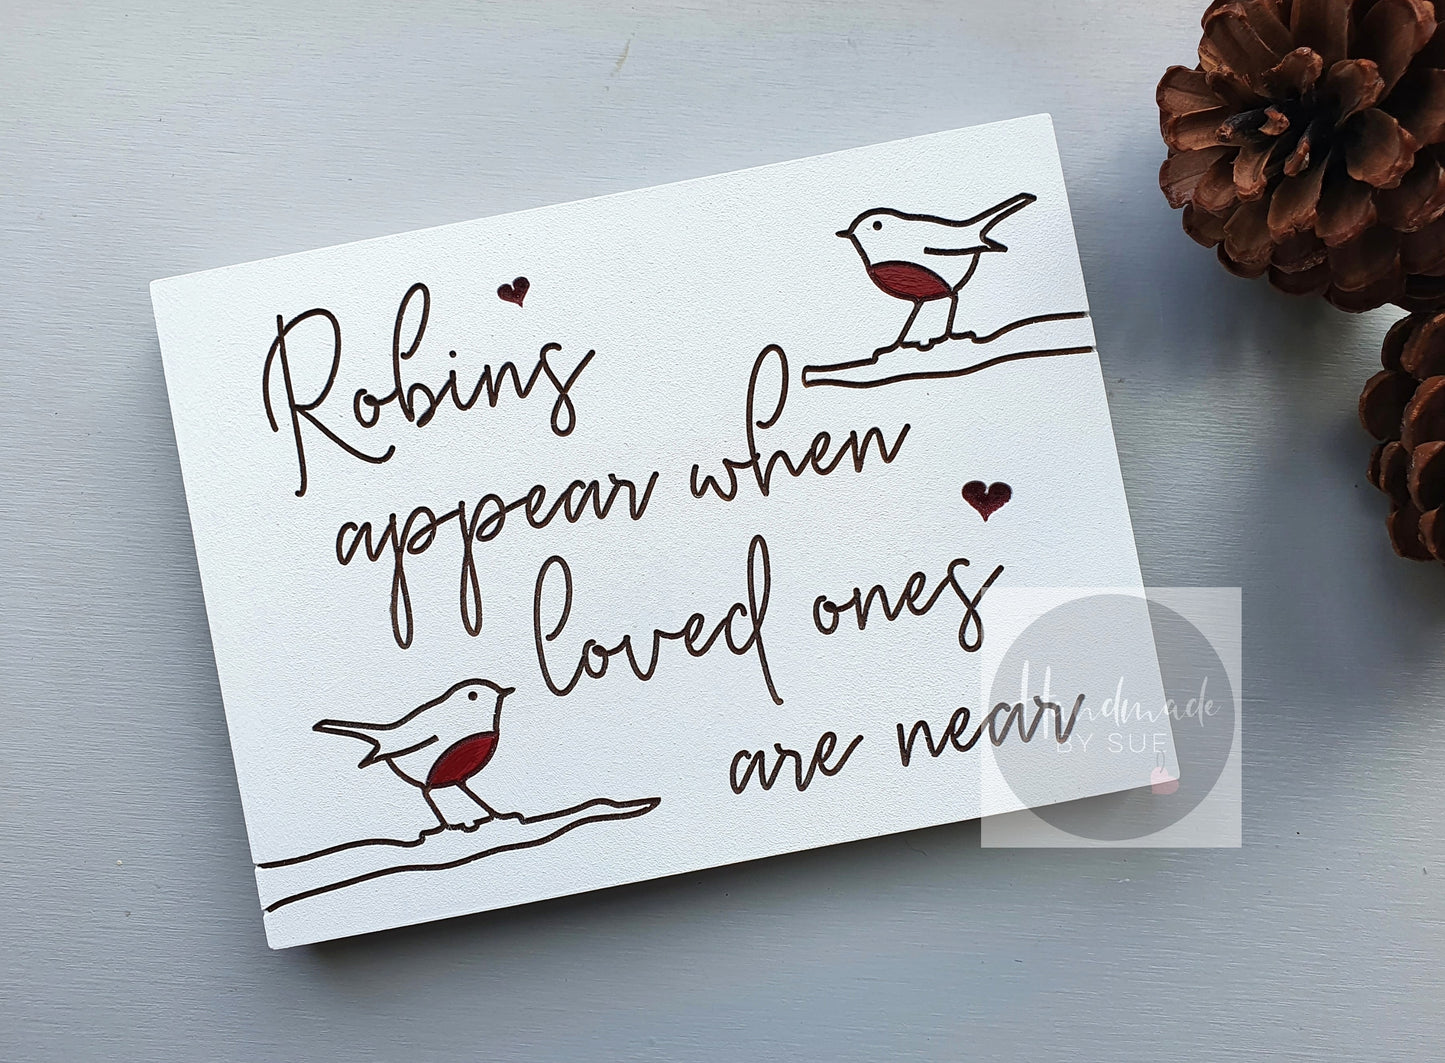 Robins
appear when
loved ones
are near
Handmade
BY SUE